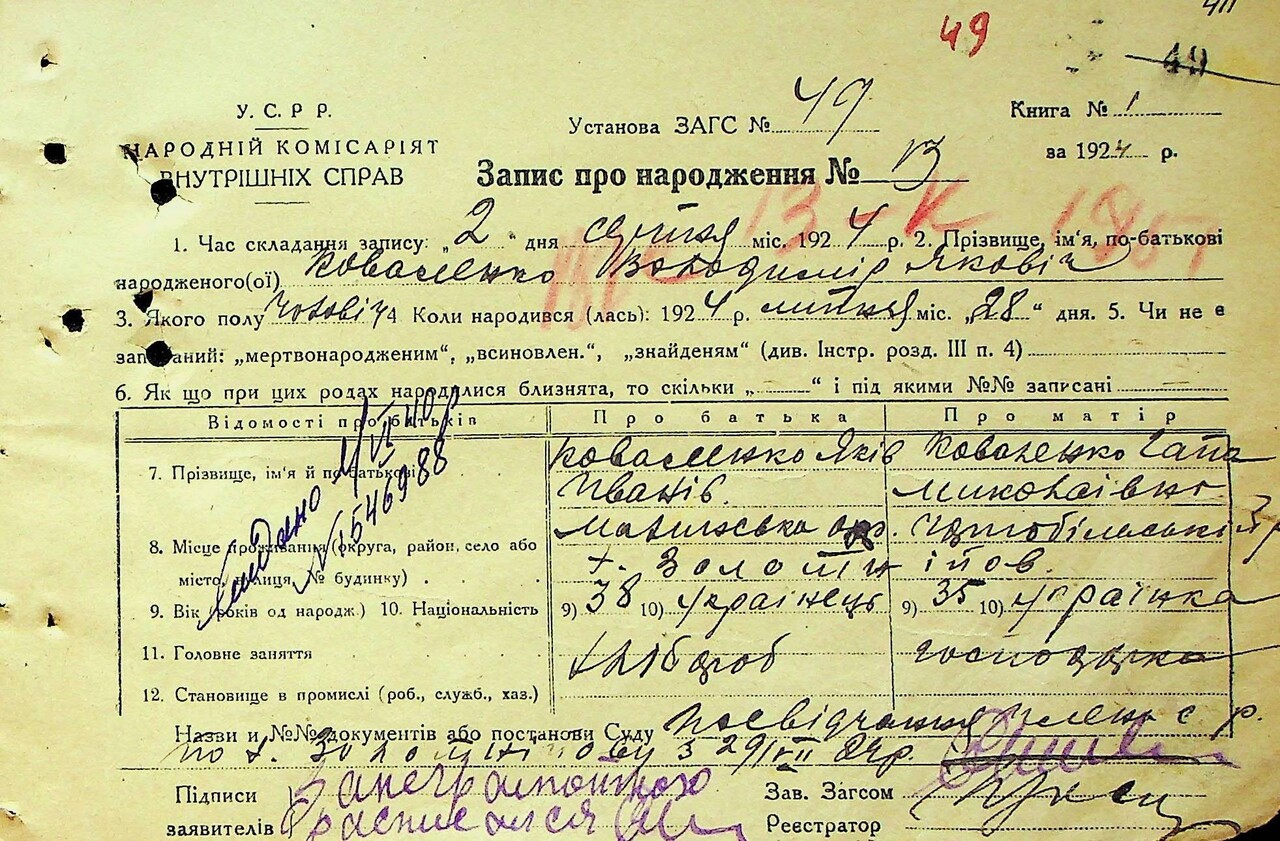 49
49
У. С. Р Р.
НАРОДНІЙ КОМІСАРІЯТ
ВНУТРІШНІХ СПРАВ
Установа ЗАГС № 49
Книга № 1
за 1924 р.
Запис про народження № 13
13-К
1. Час складання запису: „2“ дня серпня міс. 1924 р. 2. Прізвище, ім'я, по-батькові
народженого(ої) Коваленко Володимір Яковіч
3. Якого полу чоловіч 4 Коли народився (лась): 1924 р. липня міс. „28“ дня. 5. Чи не є
записаний: „мертвонародженим“, „всиновлен.“, „знайденям“ (див. Інстр. розд. III п. 4)
6. Як що при цих родах народилися близнята, то скільки „ “ і під якими №№ записані
Відомості про батьків Про батька Про матір
7. Прізвище, ім'я й по-батькові Коваленко Яків Коваленко Гапа
Іванів. Миколаівна
8. Місце проживання (округа, район, село або
місто, вулиця, № будинку) х. Золотн іпов.
9. Вік (років од народж.) 10. Національність 9) 38 10) українець 9) 35 10) українка
11. Головне заняття хлібороб господарка
12. Становище в промислі (роб., служб., хаз.)
Видано 4/VI 40 р
№ 546988
Назви и №№ документів або постанови Суду Посвідчення с р.
по х. з 29/VII 24 р.
Підписи За неграмотного Зав. Загсом
заявителів расписался Реєстратор